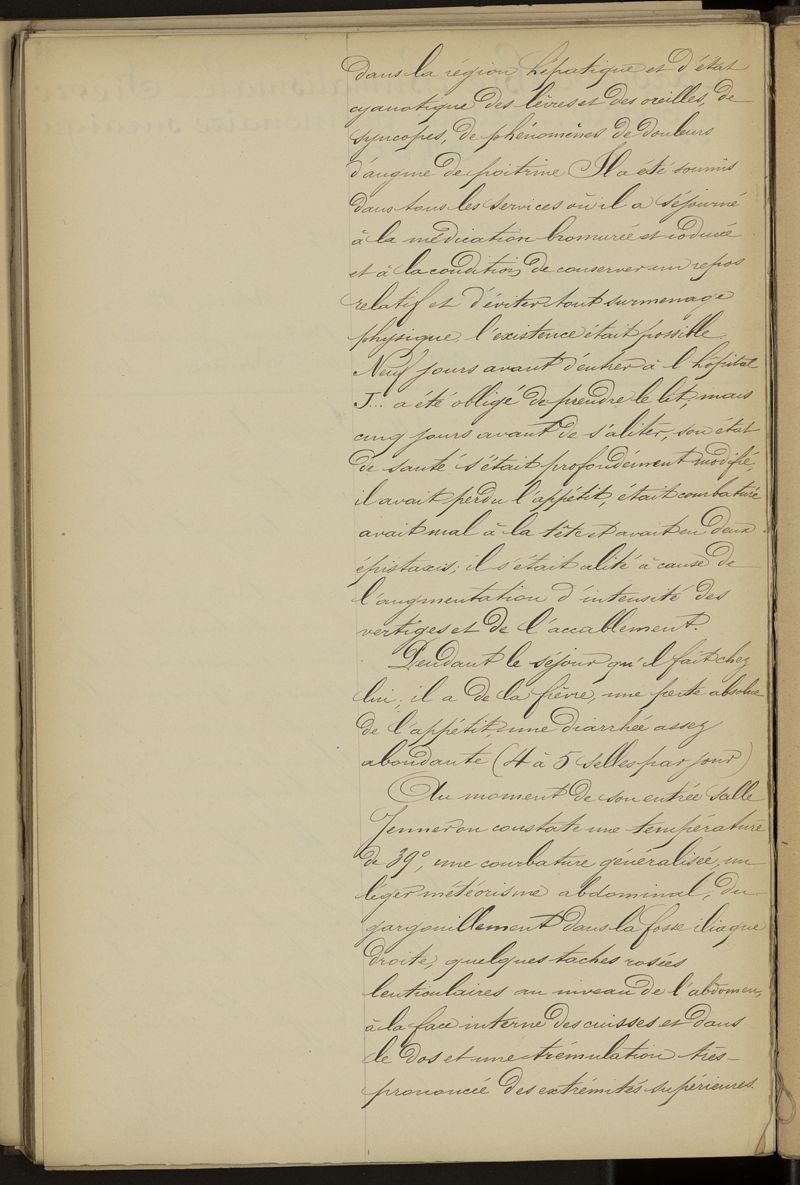 dans la région hépatique et d'état
cyanotique des lèvres et des oreilles, de
syncopes, de phénomènes de douleurs
d'angine de poitrine Il a été soumis
dans tous les services où il a séjourné
à la médication bromurée et iodurée
et à la condition de conserver un repos
relatif et d'éviter tout surmenage
physique, l'existence était possible
Neuf jours avant d'entrer à l'hôpital
J... a été obligé de prendre le lit; mais
cinq jours avant de s'aliter, son état
de santé s'était profondément modifié,
il avait perdu l'appétit, était courbaturé
avait mal à la tête et avait eu deux
épistaxis; il s'était alité à cause de
l'augmentation d'intensité des
vertiges et de l'accablement.
Pendant le séjour qu'il fait chez
lui, il a de la fièvre, une perte absolue
de l'appétit, une diarrhée assez
abondante (4 à 5 selles par jour)
Au moment de son entrée salle
Jenner on constate une température
de 39°, une courbature généralisée, un
léger météorisme abdominal, du
gargouillement dans la fosse iliaque
droite, quelques taches rosées
lenticulaires au niveau de l'abdomen,
à la face interne des cuisses et dans
le dos et une trémulation très-
prononcée des extrémités supérieures.